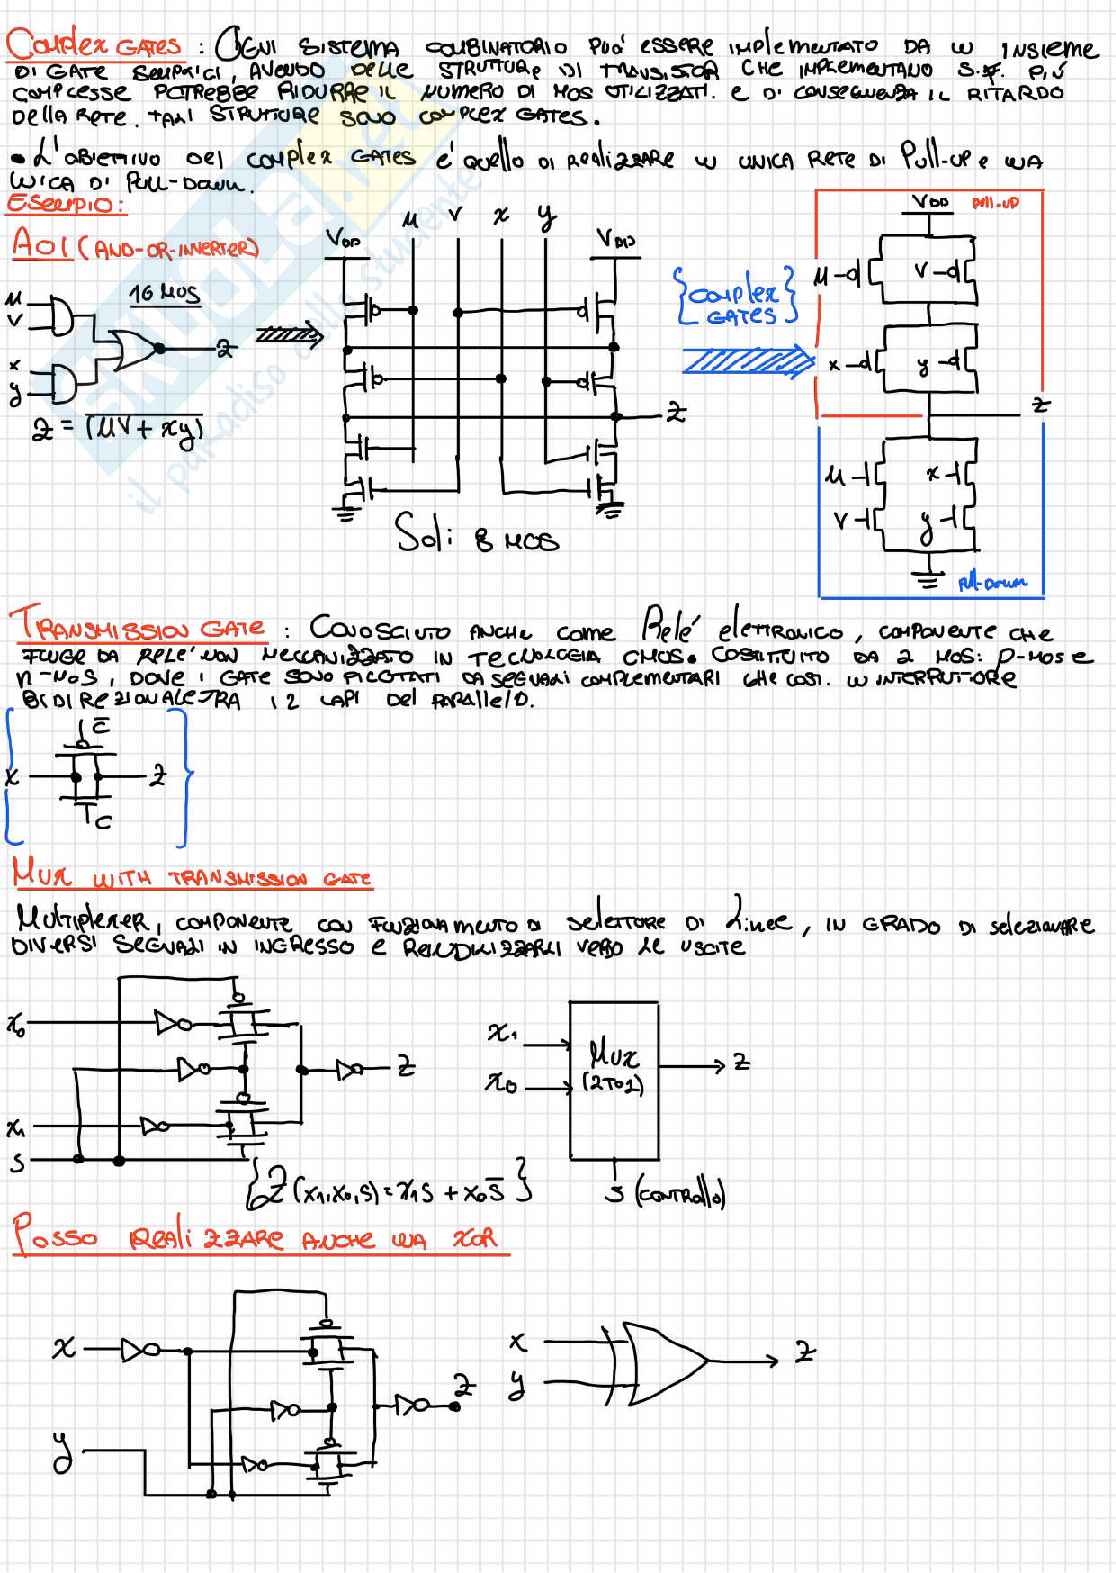 Complex GATES : OGNI SISTEMA COMBINATORIO PUÒ ESSERE IMPLEMENTATO DA UN INSIEME
DI GATE SEMPLICI, AVENDO DELLE STRUTTURE DI TRANSISTOR CHE IMPLEMENTANO S.F. PIÙ
COMPLESSE POTREBBE RIDURRE IL NUMERO DI MOS UTILIZZATI. E DI CONSEGUENZA IL RITARDO
DELLA RETE. TALI STRUTTURE SONO COMPLEX GATES.
• L'OBIETTIVO DEI COMPLEX GATES È QUELLO DI REALIZZARE UN UNICA RETE DI PULL-UP E UNA
UNICA DI PULL-DOWN.
ESEMPIO:
AOI (AND-OR-INVERTER)
16 MOS
μ
V
x
y
Z
Z = (μV + xy)
μ V x y
VDD VDD
Z
Soli 8 MOS
{COMPLEX GATES}
VDD PULL-UP
μ V
x y
Z
μ x
V y
Pull-Down
TRANSMISSION GATE : CONOSCIUTO ANCHE COME Relé elettronico, COMPONENTE CHE
FUNGE DA RELE' NON MECCANIZZATO IN TECNOLOGIA CMOS. COSTITUITO DA 2 MOS: P-MOS E
N-MOS, DOVE I GATE SONO PILOTATI DA SEGNALI COMPLEMENTARI CHE COST. UN INTERRUTTORE
BIDIREZIONALE TRA I 2 CAPI DEL PARALLELO.
C̅
x Z
C
MUX WITH TRANSMISSION GATE
Multiplexer, COMPONENTE CON FUNZIONAMENTO DI SELETTORE DI Linee, IN GRADO DI SELEZIONARE
DIVERSI SEGNALI IN INGRESSO E REINDIRIZZARLI VERSO LE USCITE
x₀
Z
x₁
S
{Z(x₁,x₀,s) = x₁s + x₀s̅}
x₁
x₀
MUX
(2TO1)
Z
S (CONTROLLO)
POSSO REALIZZARE ANCHE UNA XOR
x
y
Z
x
y
Z
SKUOLA.net
il paradiso dello studente